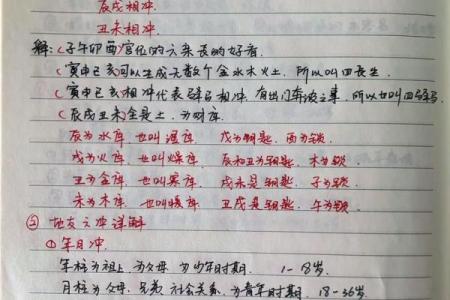 辰戌相冲.
丑未相冲.
解: (子午卯酉)宫位的六亲长的好看.
(寅申巳亥可以生成无数个金水木火土, 所以叫四长生.
(寅申巳亥相冲代表驿马相冲, 有出门奔波之事, 所以也叫四驿马.
(辰戌丑未全是土, 为四库.
辰为水库, 也叫湿库. 戌为钥匙, 酉为锁.
戌为火库, 也叫燥库. 辰和丑为钥匙, 木为锁.
丑为金库, 也叫寒库. 戌未是钥匙, 子为锁.
未为木库, 也叫暖库. 丑戌是钥匙, 午为锁.
② 地支六冲详解
①年月冲.
年柱为祖上, 为父母, 为少年时期. 1-8岁.
月柱为父母, 兄弟, 社会关系, 为青年时期. 18-36岁.